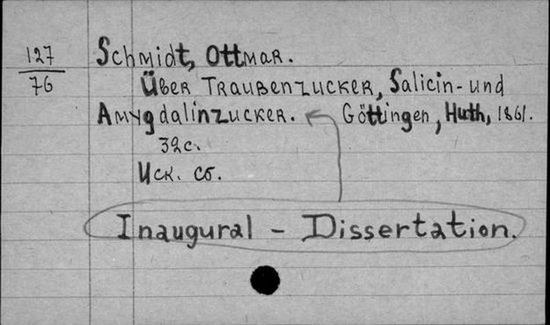 127
76
Schmidt, Ottmar.
Über Traubenzucker, Salicin- und
Amygdalinzucker. Göttingen, Huth, 1861.
32c.
Иск. сб.
Inaugural - Dissertation.